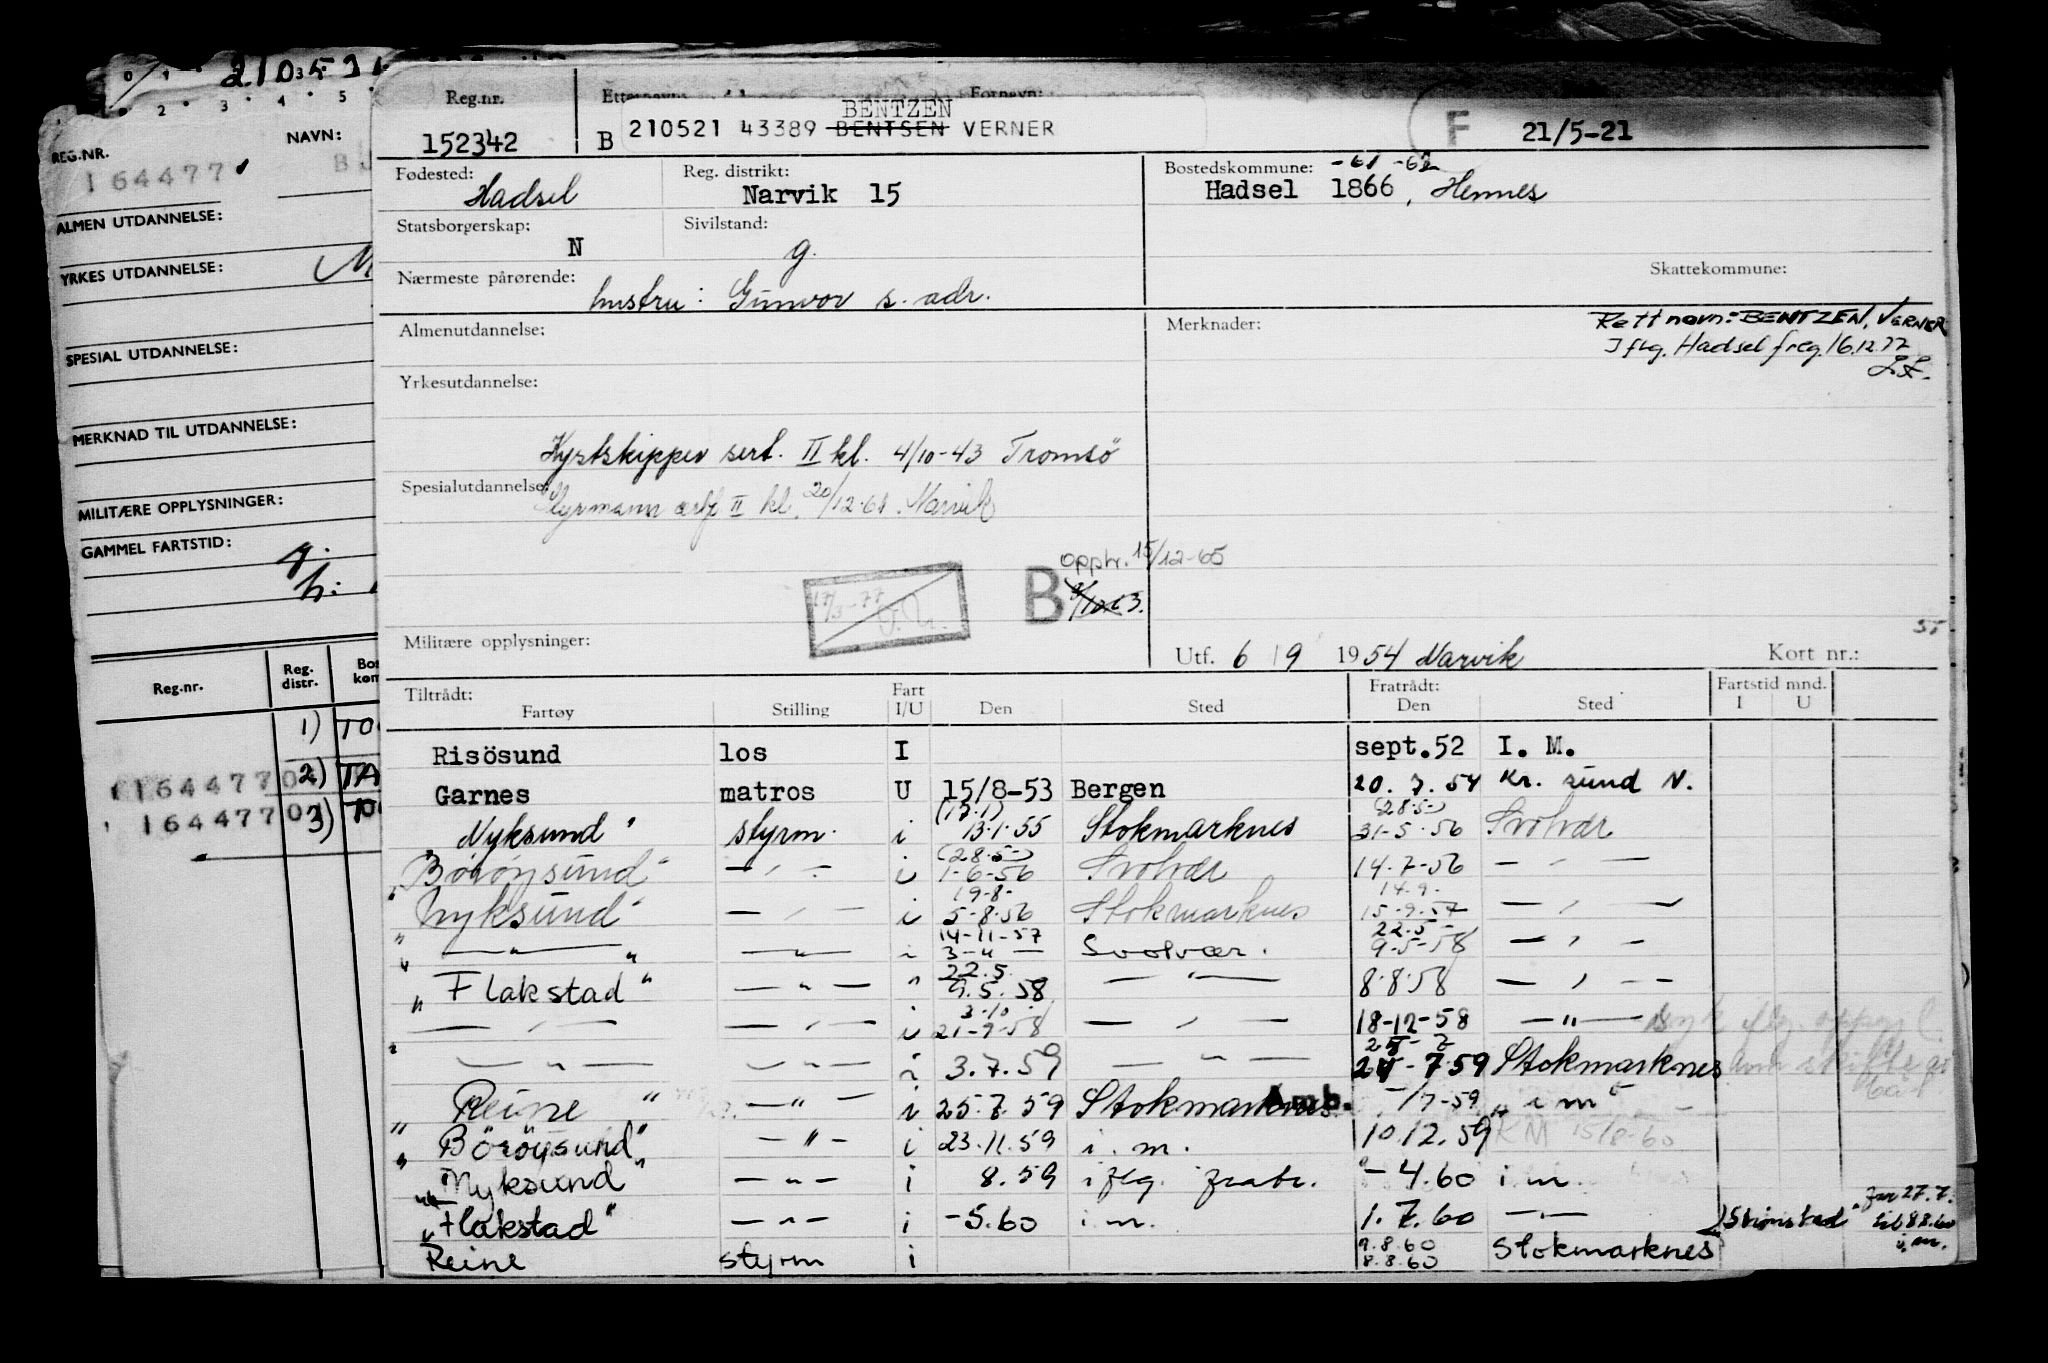 21053
0 1
2 3 4 5
REG.NR.
NAVN:
164477
ALMEN UTDANNELSE:
YRKES UTDANNELSE:
SPESIAL UTDANNELSE:
MERKNAD TIL UTDANNELSE:
MILITÆRE OPPLYSNINGER:
GAMMEL FARTSTID:
g.
h:
Reg.nr. Reg. distr.
1)
164477 2) TA
164477 3)
Reg.nr. Etternavn Fornavn:
BENTZEN
152342 B 210521 43389 BENTSEN VERNER F 21/5-21
Fødested: Hadsel Reg. distrikt: Narvik 15 Bostedskommune: -61 -62
Hadsel 1866, Hennes
Statsborgerskap: N Sivilstand: g.
Skattekommune:
Nærmeste pårørende: hustru: Gunvor s. adr.
Almenutdannelse: Merknader: Rett navn: BENTZEN, VERNER
Iflg. Hadsel freg. 16.12.77
Yrkesutdannelse:
Kystskipper sert. II kl. 4/10-43 Tromsö
Spesialutdannelse: Styrmann II kl. 20/12-61. Narvik
Opptr. 15/12-65
17/3-77
B
Militære opplysninger:
Utf. 6/9 1954 Narvik Kort nr.:
Tiltrådt: Fart Fratrådt: Fartstid mnd.
Fartøy Stilling I/U Den Sted Den Sted I U
Risösund los I sept.52 I. M.
Garnes matros U 15/8-53 Bergen 20. 7. 54 Kr. sund N.
(13.1) (28.5)
"Nyksund" styrm. i 13.1.55 Stokmarknes 31-5-56 Svolvær
(28.5)
"Böröysund" — " — i 1-6-56 Svolvær 14-7-56 — " —
19-8- 14.9.
"Nyksund" — " — i 5-8-56 Stokmarknes 15-9-57 — " —
14-11-57 22.5-
" — " — " — " — i 3-11 — Svolvær. 9-5-58 — " —
22.5.
"Flakstad" — " — " 9.5.58 — " — 8.8.58 — " —
3-10
— " — — " — i 21-9-58 — " — 18-12-58 — " —
25-7
— " — — " — i 3.7.59 — " — 24-7.59 Stokmarknes
"Reine" — " — i 25.7.59 Stokmarknes Amb. /7-59 i m
"Böröysund" — " — i 23.11.59 i. m. 10.12.59 KM 15/8-60
"Nyksund" — " — i 8.59 iflg. fratr. - 4.60 i m.
"Flakstad" — " — i -5.60 i. m. 1.7.60 — " — "Skonstad" fra 27.7. til 8.8.60 i. m.
9.8.60
Reine styrm i 8.8.60 Stokmarknes